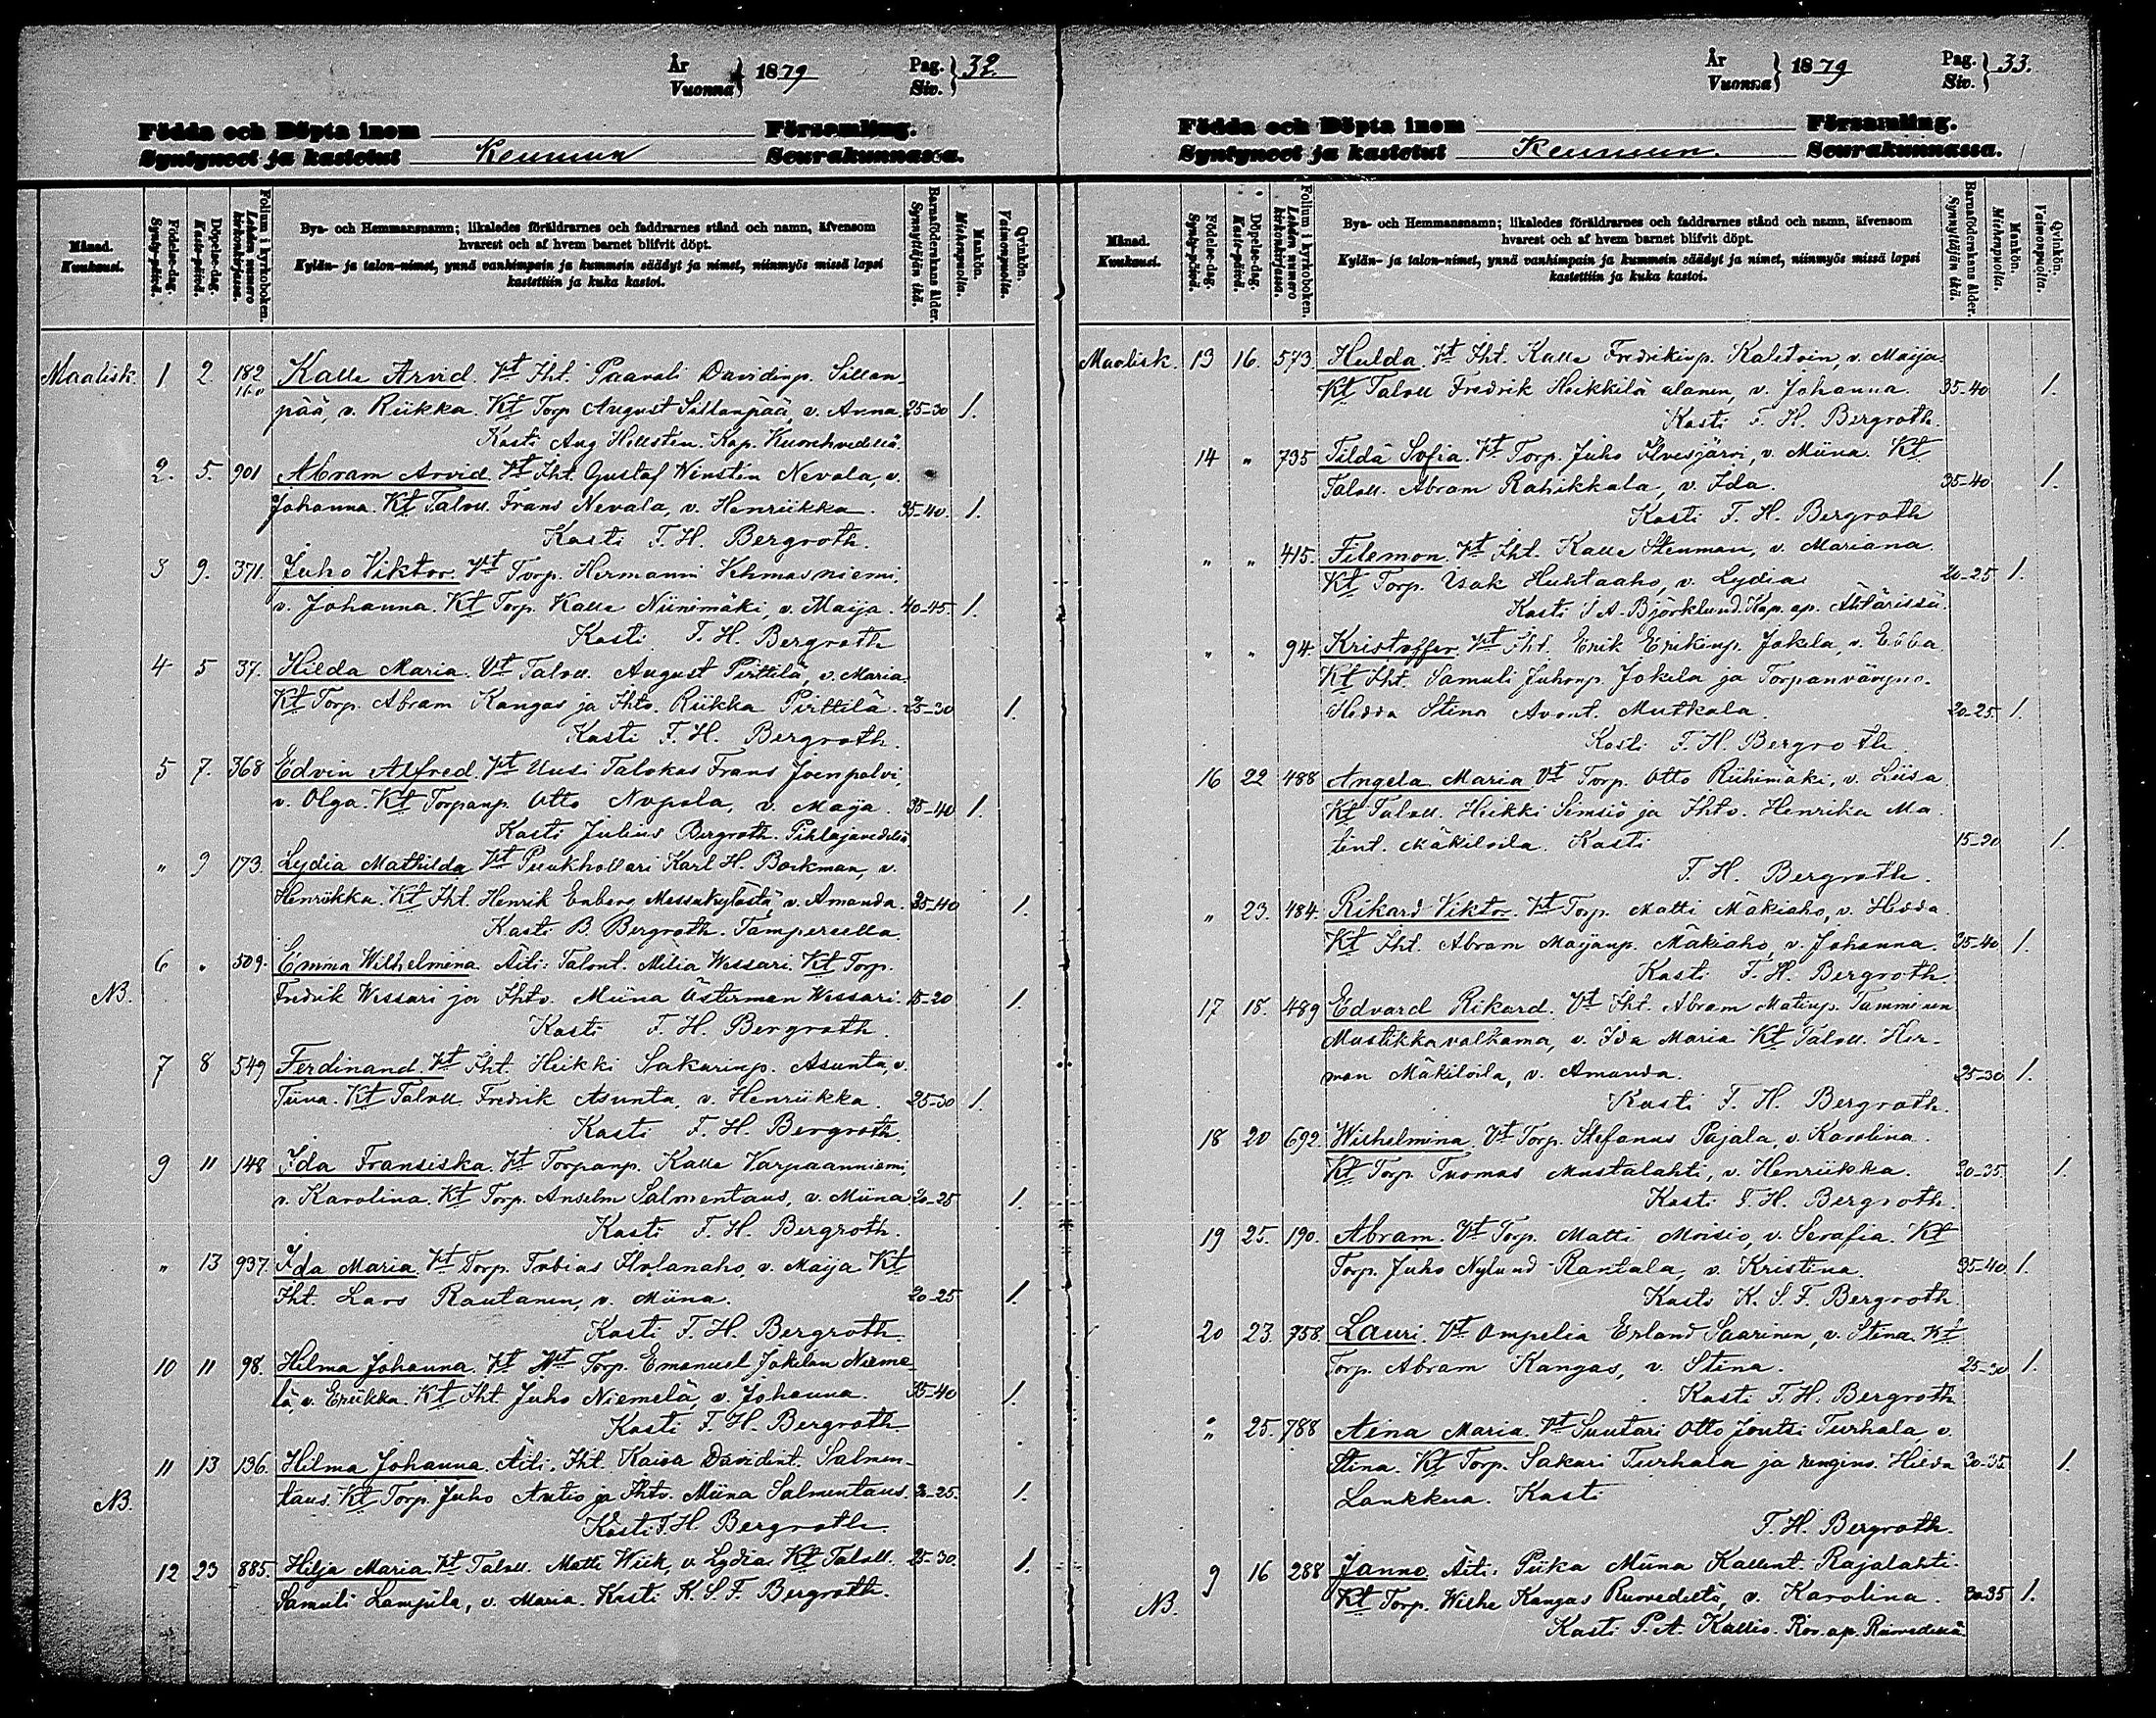 År
Vuonna } 1879 Pag.
Siv. } 32.
Födda och Döpta inom Församling.
Syntyneet ja kastetut Keuruun Seurakunnassa.
Månad.
Kuukausi.
Födelse-dag.
Synty-päivä.
Döpelse-dag.
Kaste-päivä.
Folium i kyrkoboken.
Lehden numero kirkonkirjassa.
Bya- och Hemmansnamn; likaledes föräldrarnes och faddrarnes stånd och namn, äfvensom
hvarest och af hvem barnet blifvit döpt.
Kylän- ja talon-nimet, ynnä vanhimpain ja kummein säädyt ja nimet, niinmyös missä lapsi
kastettiin ja kuka kastoi.
Barnaföderskans ålder.
Synnyttäjän ikä.
Mankön.
Miehenpuolia.
Qvinkön.
Vaimonpuolia.
Maalisk. 1 2. 182 Kalle Arvid. Vt Iht. Paavali Davidinp. Sillan-
160 pää, v. Riikka. Kt Torp August Sillanpää, v. Anna. 25-30 1.
Kasti Aug Hellsten. Kap. Kuorehvedellä.
2. 5. 901 Abram Arvid. Vt Iht. Gustaf Winstén Nevala, v.
Johanna. Kt Taloll. Frans Nevala, v. Henriikka. 35-40. 1.
Kasti F. H. Bergroth.
3 9. 371. Juho Viktor. Vt Torp. Hermanni Vehmasniemi,
v. Johanna. Kt Torp. Kalle Niinimäki, v. Maija. 40-45. 1.
Kasti F. H. Bergroth
4 5 37. Hilda Maria. Vt Taloll. August Pirttilä, v. Maria.
Kt Torp. Abram Kangas ja Ihto. Riikka Pirttilä. 25-30 1.
Kasti F. H. Bergroth.
5 7. 368 Edvin Alfred. Vt Uusi Talokas Frans Joenpolvi,
v. Olga. Kt Torpanp. Otto Nopola, v. Maija. 35-40 1.
Kasti Julius Bergroth. Pihlajavedellä
" 9 173. Lydia Mathilda Vt Puukhollari Karl H. Bockman, v.
Henriikka. Kt Iht. Henrik Enberg Messukylästä, v. Amanda. 35-40 1.
Kasti B. Bergroth. Tampereella.
6 " 509. Emma Wilhelmina. Äiti: Talont. Milia Wessari. Kt Torp.
NB. Fredrik Wessari ja Ihto. Miina Österman Wessari. 15-20 1.
Kasti F. H. Bergroth.
7 8 549 Ferdinand. Vt Iht. Heikki Sakarinp. Asunta, v.
Tiina. Kt Taloll. Fredrik Asunta, v. Henriikka. 25-30 1.
Kasti F. H. Bergroth.
9 11 148 Ida Fransiska. Vt Torpanp. Kalle Varpaanniemi,
v. Karolina. Kt Torp. Anselm Salmentaus, v. Miina 20-25 1.
Kasti F. H. Bergroth.
" 13 937. Ida Maria. Vt Torp. Tobias Ilolanaho, v. Maija Kt
Iht. Lars Rautanen, v. Miina. 20-25 1.
Kasti F. H. Bergroth.
10 11 98. Hilma Johanna. Vt Torp. Emanuel Jokelan Nieme-
lä, v. Eriikka. Kt Iht. Juho Niemelä, v. Johanna. 35-40 1.
Kasti F. H. Bergroth
11 13 136. Hilma Johanna. Äiti. Iht. Kaisa Davidint. Salmen-
NB. taus. Kt Torp. Juho Autio ja Ihto. Miina Salmentaus. 20-25. 1.
Kasti F. H. Bergroth.
12 23 885. Hilja Maria. Vt Taloll. Matti Wiik, v. Lydia. Kt Taloll. 25-30. 1.
Samuli Lampila, v. Maria. Kasti K. S. F. Bergroth.
År
Vuonna } 1879 Pag.
Siv. } 33.
Födda och Döpta inom Församling.
Syntyneet ja kastetut Keuruun. Seurakunnassa.
Månad.
Kuukausi.
Födelse-dag.
Synty-päivä.
Döpelse-dag.
Kaste-päivä.
Folium i kyrkoboken.
Lehden numero kirkonkirjassa.
Bya- och Hemmansnamn; likaledes föräldrarnes och faddrarnes stånd och namn, äfvensom
hvarest och af hvem barnet blifvit döpt.
Kylän- ja talon-nimet, ynnä vanhimpain ja kummein säädyt ja nimet, niinmyös missä lapsi
kastettiin ja kuka kastoi.
Barnaföderskans ålder.
Synnyttäjän ikä.
Mankön.
Miehenpuolia.
Qvinkön.
Vaimonpuolia.
Maalisk. 13 16. 573. Hulda. Vt Iht. Kalle Fredrikinp. Kaletoin, v. Maija
Kt Taloll Fredrik Heikkilä alanen, v. Johanna. 35-40 1.
Kasti F. H. Bergroth.
14 " 735 Tilda Sofia. Vt Torp. Juho Ilvesjärvi, v. Miina. Kt
Taloll. Abram Rahikkala, v. Ida. 35-40 1.
Kasti F. H. Bergroth
" " 415. Filemon. Vt Iht. Kalle Stenman, v. Mariana.
Kt Torp. Isak Huhtaaho, v. Lydia 20-25 1.
Kasti I A. Björklund. Kap. ap. Ähtärissä.
" " 94. Kristoffer. Vt Iht. Erik Erikinp. Jokela, v. Ebba
Kt Iht. Samuli Juhonp. Jokela ja Torpanvävyn v.
Hedda Stina Avont. Mutkala. 20-25. 1.
Kasti F. H. Bergroth.
16 22 488 Angela Maria Vt Torp. Otto Riihimäki, v. Liisa
Kt Taloll. Heikki Simsiö ja Ihto. Henrika Ma-
tint. Mäkiloila. Kasti 15-20 1.
F. H. Bergroth.
" 23. 484. Rikard Viktor. Vt Torp. Matti Mäkiaho, v. Hedda.
Kt Iht. Abram Maijanp. Mäkiaho, v. Johanna. 35-40 1.
Kasti F. H. Bergroth.
17 18. 489 Edvard Rikard. Vt Iht. Abram Matinp. Tamminen
Mustikkavalkama, v. Ida Maria Kt Taloll. Her-
man Mäkiloila, v. Amanda. 25-30 1.
Kasti F. H. Bergroth.
18 20 692. Wilhelmina. Vt Torp. Stefanus Pajala, v. Karolina.
Kt Torp. Tuomas Mustalahti, v. Henriikka. 30-35. 1.
Kasti F. H. Bergroth.
19 25. 190. Abram. Vt Torp. Matti Moisio, v. Serafia. Kt
Torp. Juho Nylund Rantala, v. Kristina. 35-40. 1.
Kasti K. S. F. Bergroth.
20 23. 758. Lauri. Vt Ompelia Erland Saarinen, v. Stina. Kt
Torp. Abram Kangas, v. Stina. 25-30 1.
Kasti F. H. Bergroth
" 25. 788 Aina Maria. Vt Suutari Otto Joutsi Turhala v.
Stina. Kt Torp. Sakari Turhala ja rengin v. Hilda 30-35. 1.
Lankkua. Kasti
F. H. Bergroth.
9 16 288 Janne. Äiti: Piika Miina Kallent. Rajalahti.
NB. Kt Torp. Wilhe Kangas Ruovedeltä, v. Karolina. 30-35 1.
Kasti P. A. Kallio. Rov. ap. Ruovedellä.